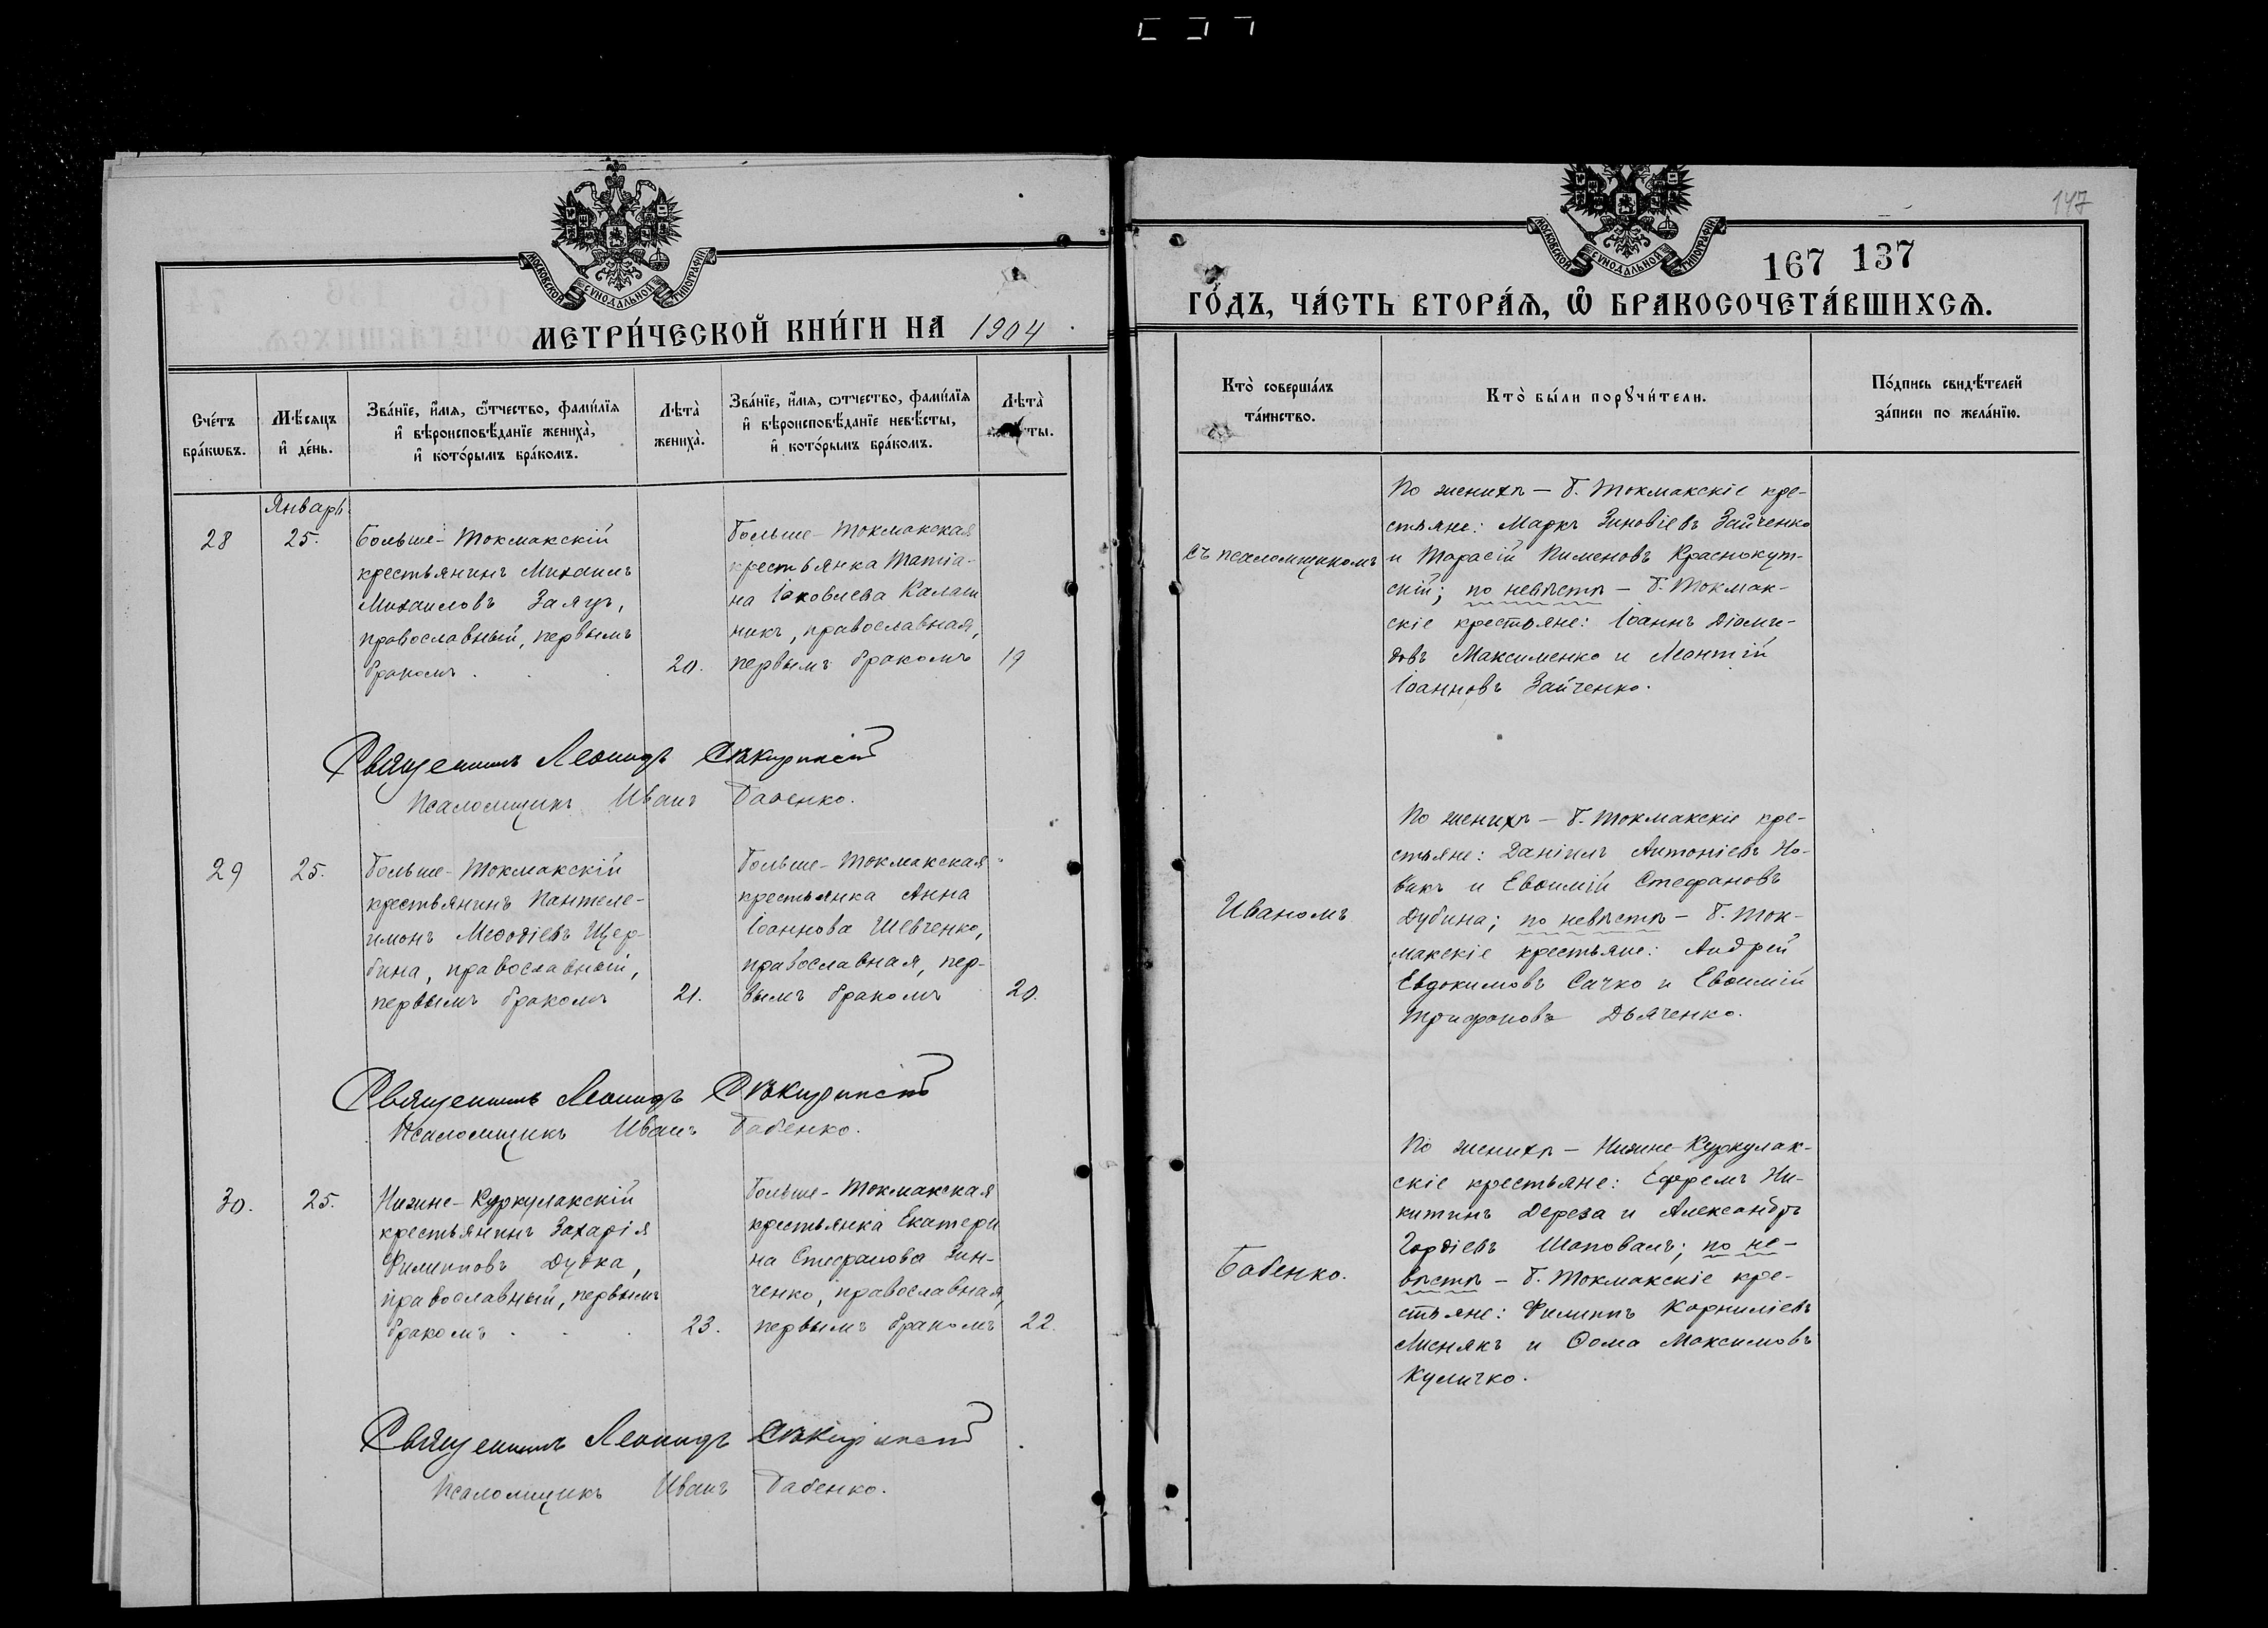 МОСКОВСКОЙ СѴНОДАЛЬНОЙ ТИПОГРАФІИ
МЕТРИ́ЧЕСКОЙ КНИ́ГИ НА 1904
Сче́тъ бра́кѡвъ.
Мѣ́сяцъ и҆ де́нь.
Зва́нїе, и҆́мѧ, ѻ҆́тчество, фами́лїѧ и҆ вѣроисповѣ́данїе жениха̀, и҆ кото́рымъ бра́комъ.
Лѣта̀ жениха̀.
Зва́нїе, и҆́мѧ, ѻ҆́тчество, фами́лїѧ и҆ вѣроисповѣ́данїе невѣ́сты, и҆ кото́рымъ бра́комъ.
Лѣта̀ ты.
Январь
28
25.
Больше-Токмакскій
крестьянинъ Михаилъ
Михаиловъ Заяцъ,
православный, первымъ
бракомъ . . .
20.
Больше-Токмакская
крестьянка Татіа-
на Іаковлева Калаш
никъ, православная,
первымъ бракомъ
19
Священникъ Леонидъ
Псаломщикъ Иванъ Бабенко.
29
25.
Больше-Токмакскій
крестьянинъ Пантеле-
имонъ Меѳодіевъ Щер-
бина, православный,
первымъ бракомъ
21.
Больше-Токмакская
крестьянка Анна
Іоаннова Шевченко,
православная, пер-
вымъ бракомъ
20.
Священникъ Леонидъ
Псаломщикъ Иванъ Бабенко.
30.
25.
Нижне-Куркулакскій
крестьянинъ Захарія
Филипповъ Дудка,
православный, первымъ
бракомъ . . .
23.
Больше-Токмакская
крестьянка Екатери
на Стефанова Зин-
ченко, православная,
первымъ бракомъ
22.
Священникъ Леонидъ
Псаломщикъ Иванъ Бабенко.
147
МОСКОВСКОЙ СѴНОДАЛЬНОЙ ТИПОГРАФІИ
167 137
ГО́ДЪ, ЧА́СТЬ ВТОРА́Ѧ, Ѽ БРАКОСОЧЕТА́ВШИХСѦ.
Кто̀ соверша́лъ та́инство.
Кто̀ бы́ли порꙋчи́тели.
По́дпись свидѣ́телей за́писи по жела́нїю.
съ псаломщикомъ
По женихѣ – Б. Токмакскіе кре-
стьяне: Маркъ Зиновіевъ Зайченко
и Тарасій Пименовъ Краснокут-
скій; по невѣстѣ – Б. Токмак-
скіе крестьяне: Іоаннъ Діоми-
довъ Максименко и Леонтій
Іоанновъ Зайченко.
Иваномъ
По женихѣ – Б. Токмакскіе кре-
стьяне: Даніилъ Антоніевъ Но-
вакъ и Евѳимій Стефановъ
Дубина; по невѣстѣ – Б. Ток-
макскіе крестьяне: Андрей
Евдокимовъ Сачко и Евѳимій
Трифоновъ Дьяченко.
Бабенко.
По женихѣ – Нижне-Куркулак-
скіе крестьяне: Ефремъ Ни-
китинъ Дереза и Александръ
Гордіевъ Шаповалъ; по не-
вѣстѣ – Б. Токмакскіе кре-
стьяне: Филиппъ Корниліевъ
Лиснякъ и Ѳома Максимовъ
Куличко.